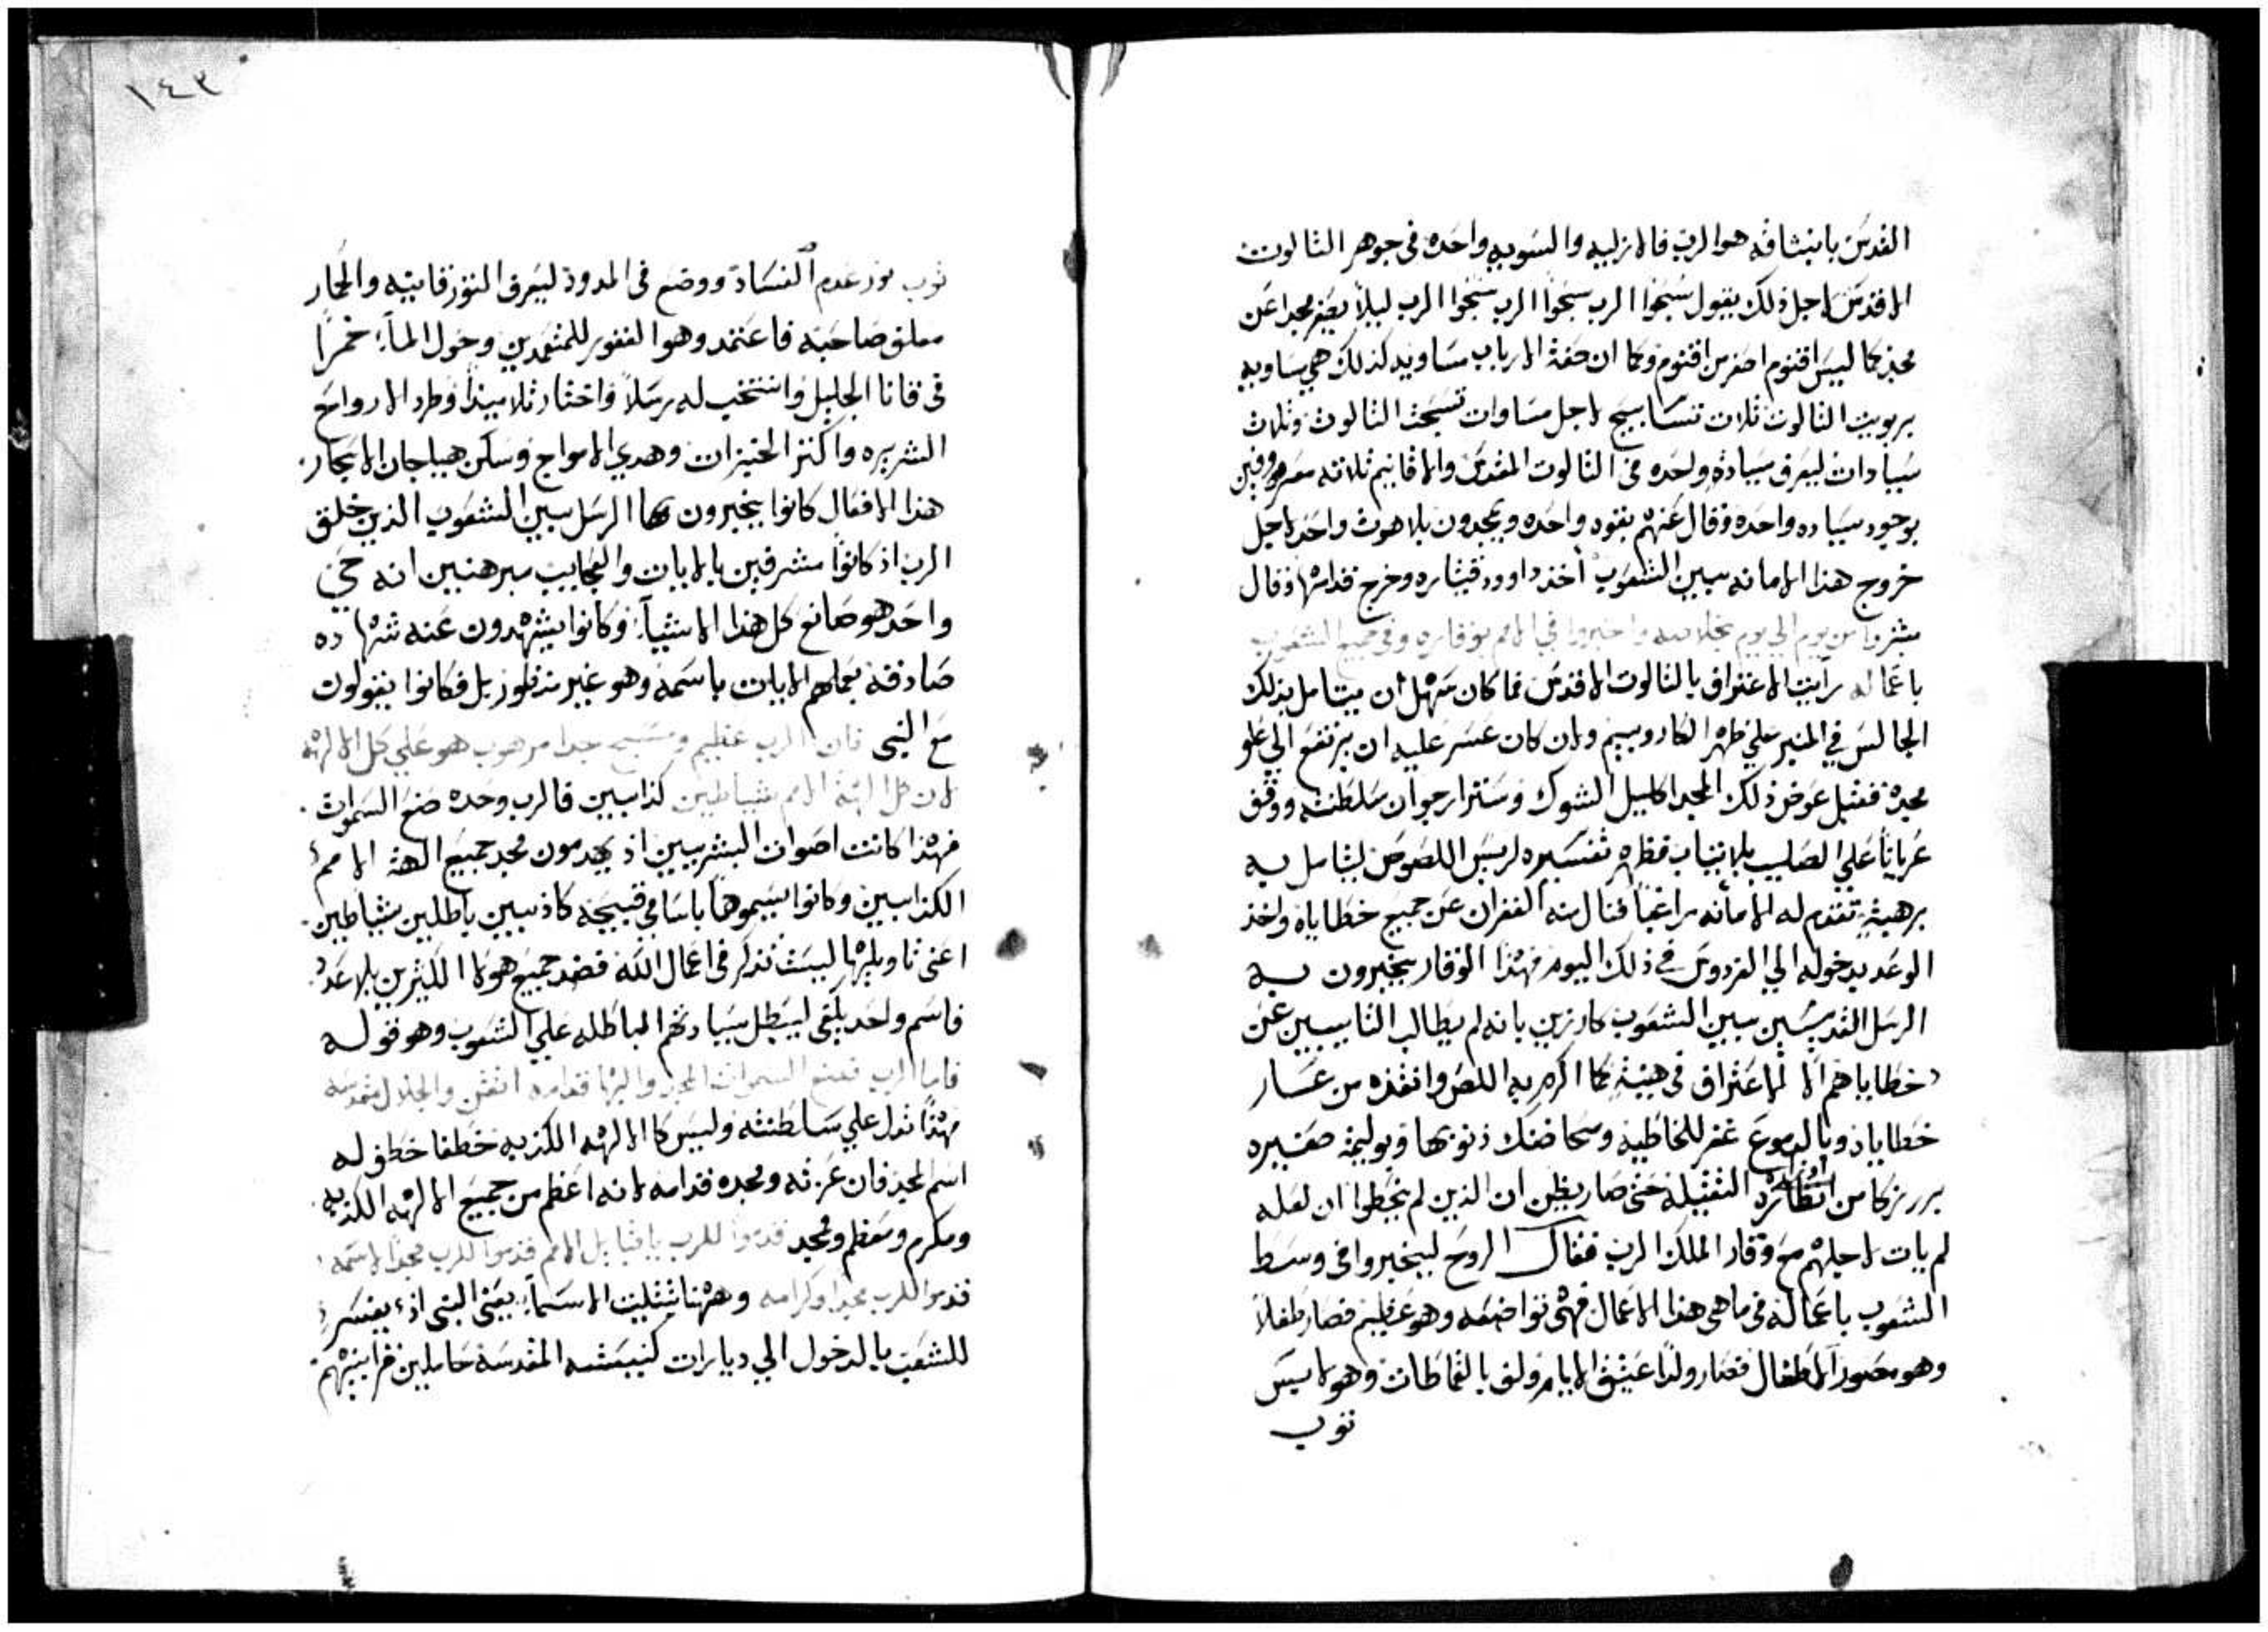 القدس بانبثاقه هو الرب فالازليه والسويه واحده في جوهر الثالوث
الاقدس لاجل ذلك يقول سبحوا الرب سبحوا الرب سبحوا الرب ليلا يصغر مجدا عن
مجد كما ليس اقنوم اصغر من اقنوم وكما ان صفة الارباب مساويه كذلك هي مساويه
بربوبية الثالوث ثلاث تسابيح لاجل مساوات تسبحت الثالوث وثلاث
سيادات ليعرف سيادة واحده في الثالوث المقدس والاقانيم ثلاثه معروفين
بوجود سياده واحده وقال عنهم بقوه واحده ويمجدون بلاهوت واحد لاجل
خروج هذا الامانه بين الشعوب أخذ داوود قيثاره وخرج قدامها وقال
بشروا من يوم الي يوم بخلاصه واخبروا في الامم بوقاره وفي جميع الشعوب
باعماله رأيت الاعتراف بالثالوث الاقدس فما كان سهل أن يتامل بذلك
الجالس في المنبر علي ظهر الكاروبيم ولان كان عسر عليه ان يرتفع الي علو
مجده فقبل عوض ذلك المجد اكليل الشوك وستر ارجوان سلطنته ووقف
عريانا علي الصليب بلا ثياب فظهر تفسيره لريس اللصوص ليتامل به
برهبة تقدم له الامأنه راغبا فنال منه الغفران عن جميع خطاياه واخذ
الوعد بدخوله الي الفردوس في ذلك اليوم فهذا الوقار يخبرون به
الرسل القديسين بين الشعوب كارزين بانه لم يطالب التاييبين عن
خطاياهم الا الاعتراف في هيئة كما اكرم به اللص وانقذه من عسار
خطاياه وبالدموع غفر للخاطيه ومحا ضنك ذنوبها وبوليمة صغيره
برر زكا من اوزاره الثقيله حتى صار يظن ان الذين لم يخطوا ان لعله
لم يات لاجلهم مع وقار الملك الرب فقال الروح ليخبروا في وسط
الشعوب باعماله في ما هي هذا الاعمال فهي تواضعه وهو عظيم فصار طفلا
وهو مصور الاطفال فصار ولدا عتيق الايام ولف بالقماطات وهو لابس
ثوب
١٤٣
ثوب نور عدم الفساد ووضع في المدود ليعرف الثور قانيه والحمار
معلف صاحبه فاعتمد وهو الغفور للمتعمدين وحول الماء خمرا
في قانا الجليل وانتخب له رسلا واختار تلاميذا وطرد الارواح
الشريره واكثر الخبزات وهدي الامواج وسكن هياجان الابحار
هذا الافعال كانوا يخبرون بها الرسل بين الشعوب الذين خلق
الرب اذ كانوا مشرفين بالايات والعجايب مبرهنين انه حي
واحد هو صانع كل هذا الاشياء وكانوا يشهدون عنه شهاده
صادقه بعملهم الايات باسمه وهو غير منظور بل فكانوا يقولون
مع النبي فان الرب عظيم ومسبح جدا مرهوب هو علي كل الالهه
لان كل الهة الامم شياطين كذابين فالرب وحده صنع السموات
فهذا كانت اصوات البشريين اذ يهدمون مجد جميع الهة الامم
الكذابين وكانوا يسموهما باسامي قبيحه كاذبين باطلين شياطين
اعني تاويلها ليست تذكر في اعمال الله فضد جميع هولا الكثرين بلا عدد
فاسم واحد يلقي ليبطل سيادتهم الباطله علي الشعوب وهو قوله
فاما الرب فصنع السموات المجد والبها قدامه القدس والجلال في مقدسه
فهذا تدل علي سلطنته وليس كالالهه الكذبه خطفا خطف له
اسم المجد فان عزته ومجده قدامه لانه اعظم من جميع الالهه الكذبه
ومكرم ومعظم ومجد قدموا للرب يا قبايل الامم قدموا للرب مجدا لاسمه
قدموا للرب مجدا وكرامه وههنا بتثليث الاسماء يعني النبي اذ يفسر
للشعب بالدخول الي ديارات كنيسته المقدسه حاملين قرابينهم